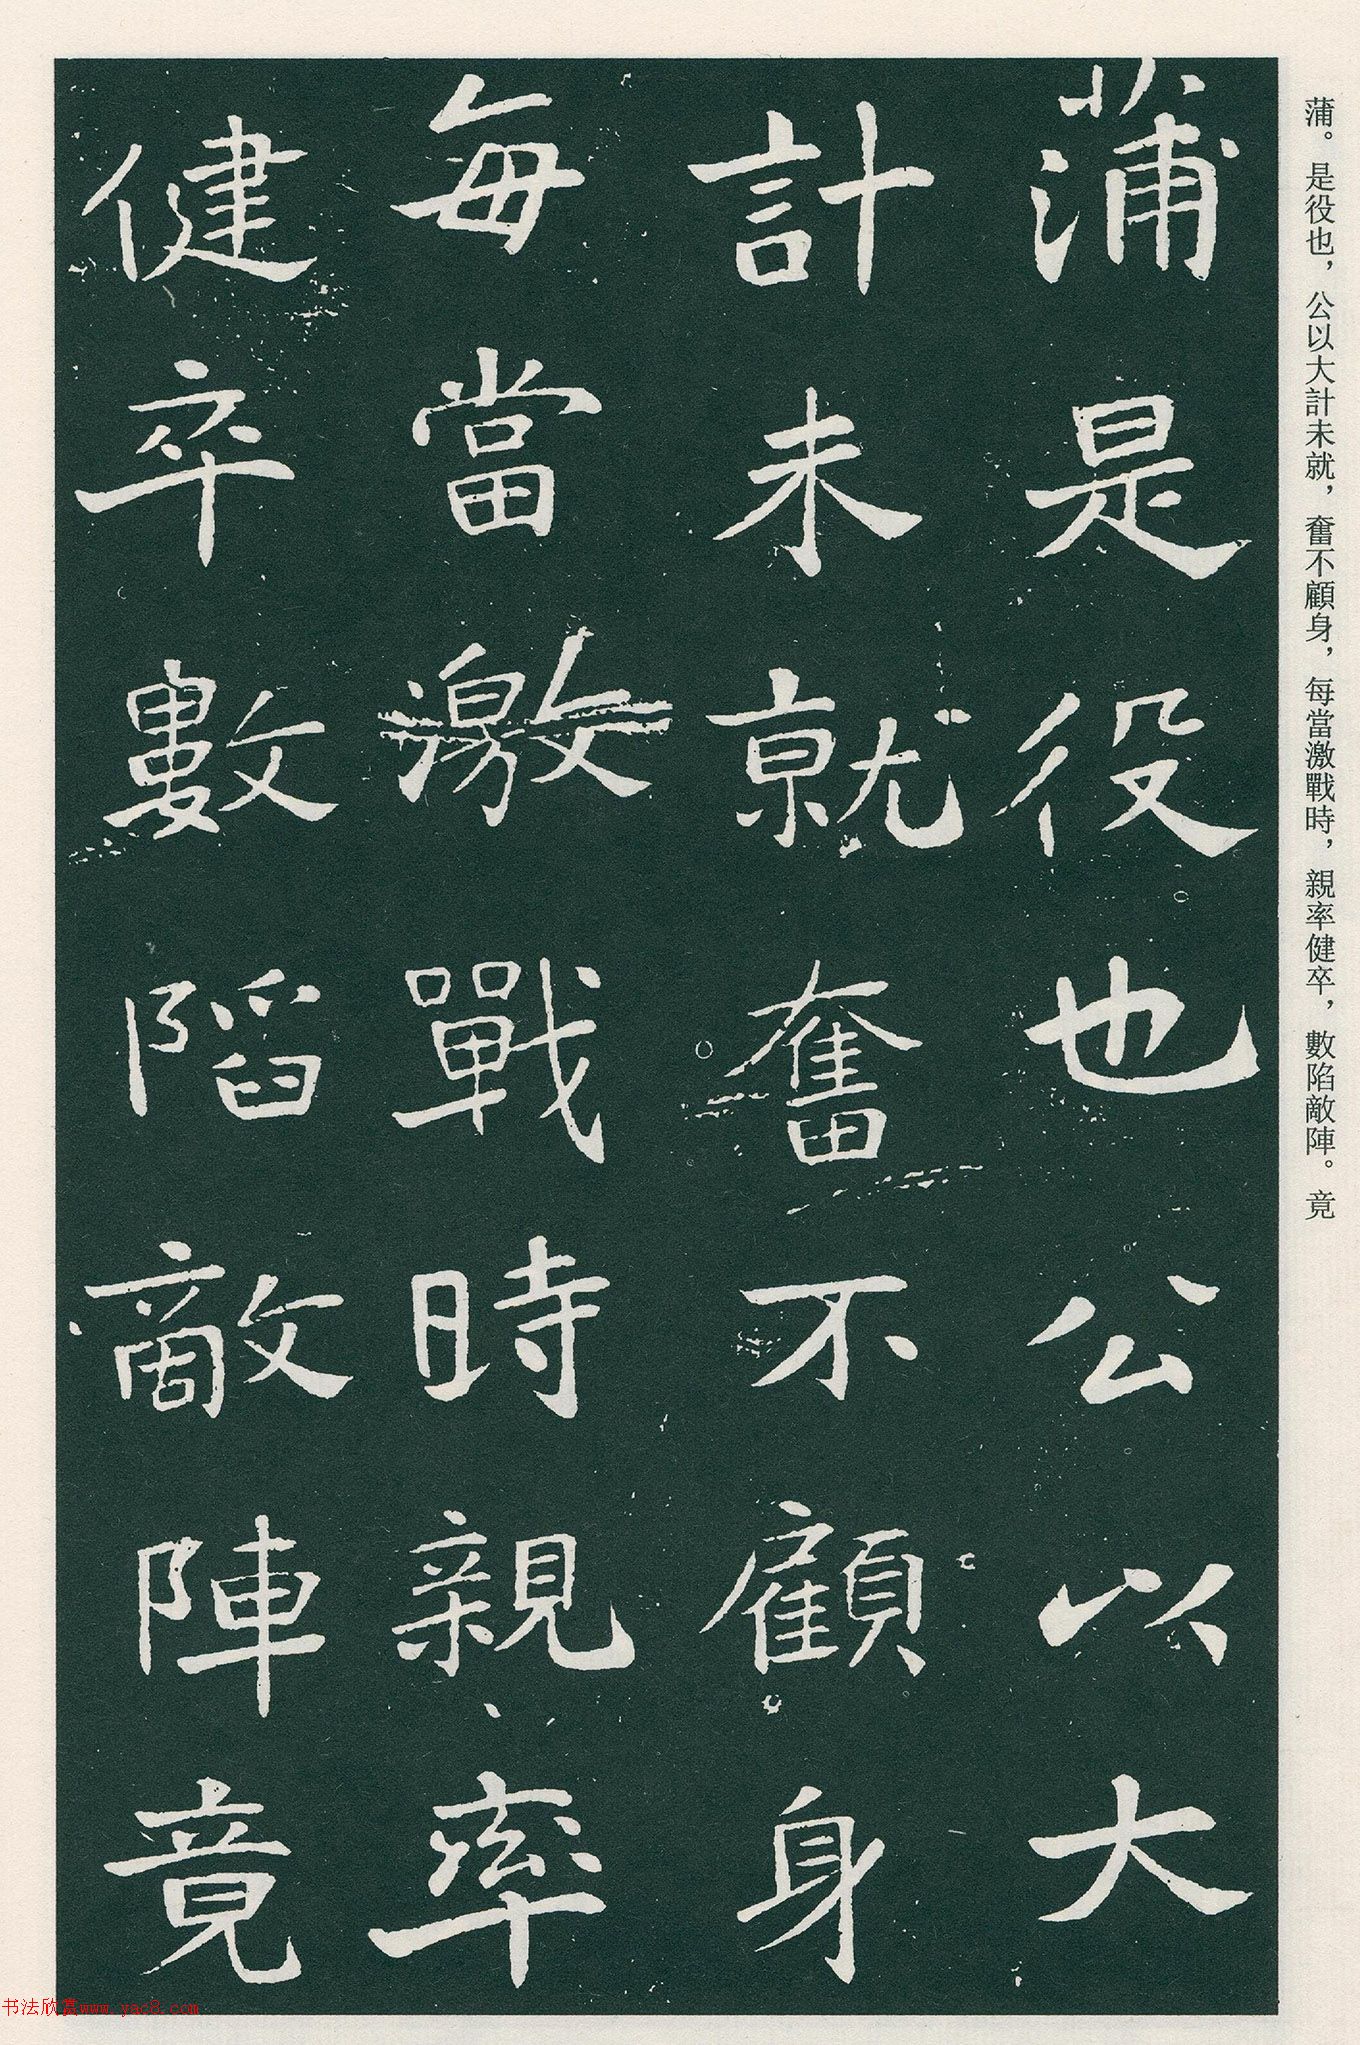 蒲是役也公以大
計未就奮不顧身
每當激戰時親率
健卒數陷敵陣竟
蒲。是役也，公以大計未就，奮不顧身，每當激戰時，親率健卒，數陷敵陣。竟
书法欣赏www.yac8.com